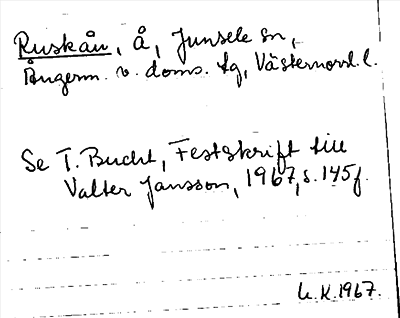 Ruskån, å, Junsele sn,
Ångerm. v. doms. tg, Västernorrl. l.
Se T. Bucht, Festskrift till
Valter Jansson, 1967, s. 145f.
U.K. 1967.